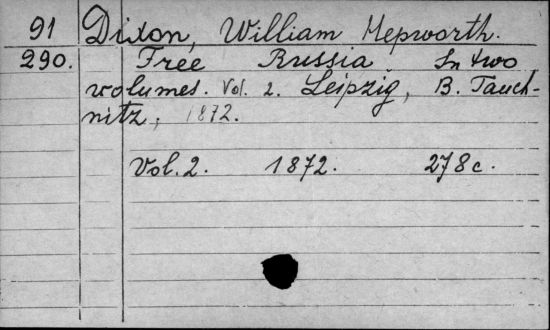 91 Dixon, William Hepworth.
290. Free Russia. In two
volumes. Vol. 2. Leipzig, B. Tauch-
nitz, 1872.
Vol. 2. 1872. 278 c.